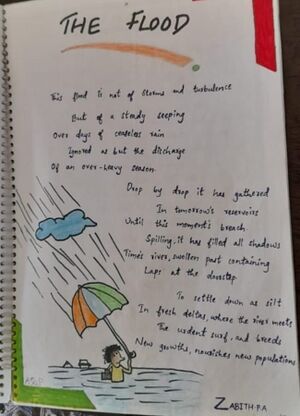 THE FLOOD
This flood is not of storms and turbulence
But of a steady seeping
Over days of ceaseless rain
Ignored as but the discharge
Of an over-heavy season.
Drop by drop it has gathered
In tomorrow's reservoirs
Until this moment's breach
Spilling, it has filled all shadows
Times river, swollen past containing
Laps at the doorstep
To settle down as silt
In fresh deltas, where the river meets
The urdent surf, and breeds
New growths, nourishes new populations
ZABITH.P.A